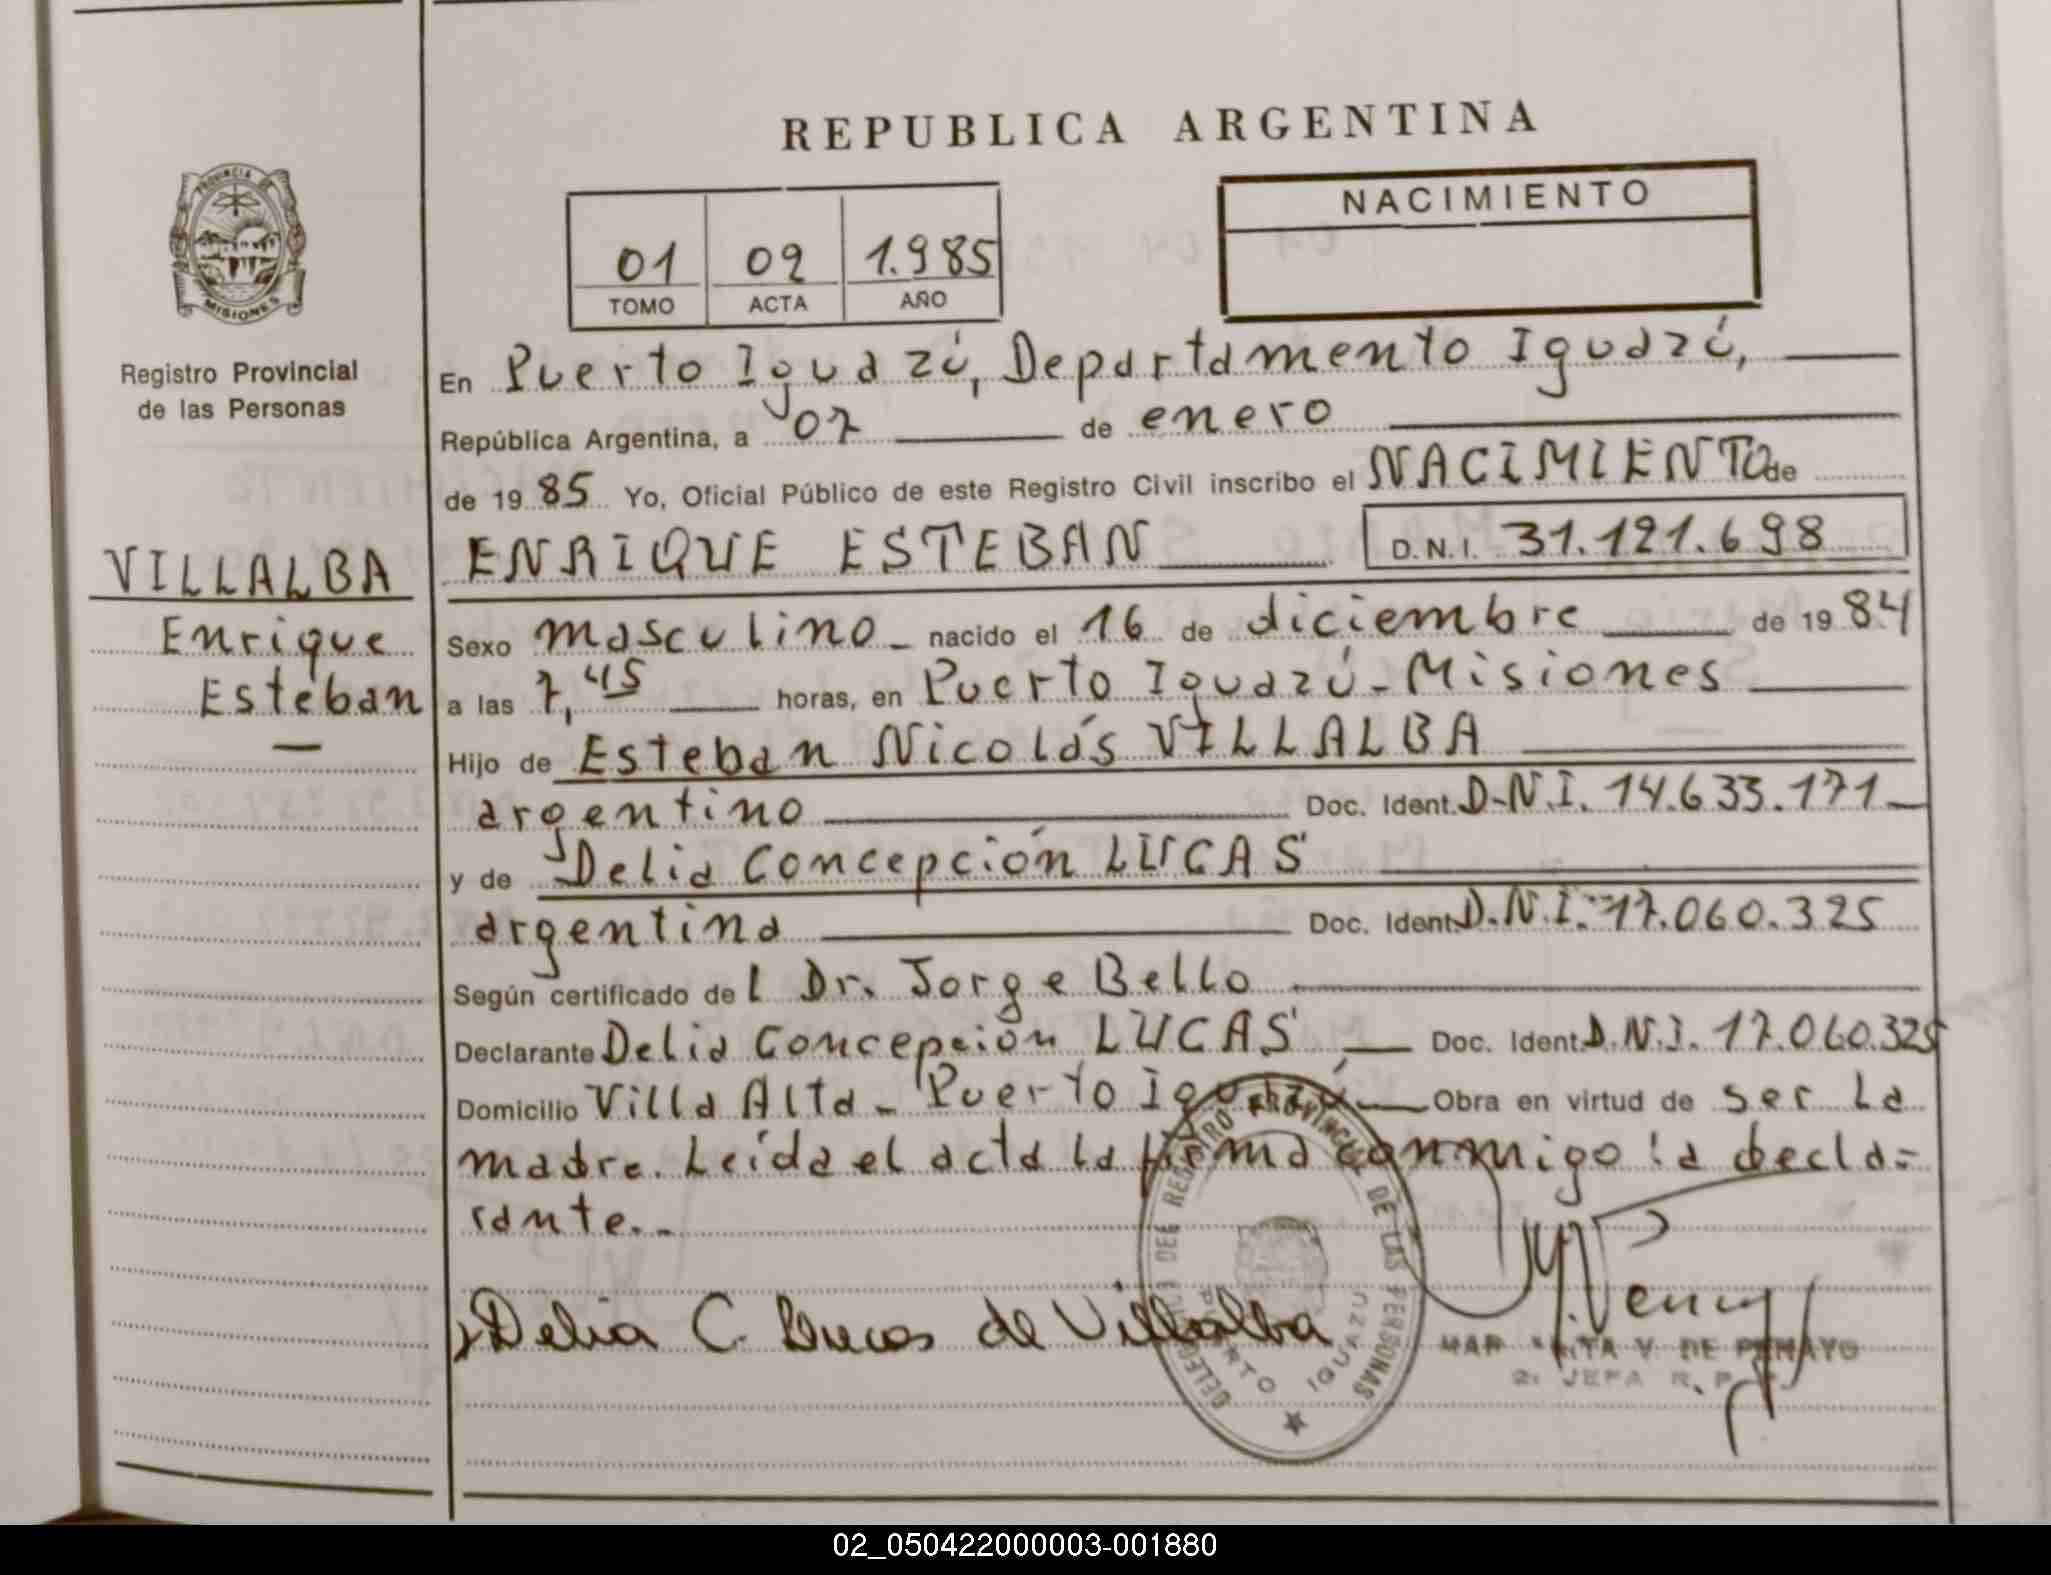 REPUBLICA ARGENTINA
PROVINCIA DE
MISIONES
Registro Provincial
de las Personas
01 09 1.985
TOMO ACTA AÑO
NACIMIENTO
En Puerto Iguazú, Departamento Iguazú,
República Argentina, a 07 de enero
de 19 85 Yo, Oficial Público de este Registro Civil inscribo el NACIMIENTO de
ENRIQUE ESTEBAN D.N.I. 31.121.698
VILLALBA
Enrique
Esteban
Sexo masculino nacido el 16 de diciembre de 19 84
a las 7,45 horas, en Puerto Iguazú - Misiones
Hijo de Esteban Nicolás VILLALBA
argentino Doc. Ident. D.N.I. 14.633.171
y de Delia Concepción LUCAS
argentina Doc. Ident. D.N.I. 17.060.325
Según certificado del Dr. Jorge Bello
Declarante Delia Concepción LUCAS Doc. Ident. D.N.I. 17.060.325
Domicilio Villa Alta - Puerto Iguazú Obra en virtud de ser la
madre. Leída el acta la firma conmigo la decla=
rante.-
Delia C. Lucas de Villalba
DEL REGISTRO PROVINCIAL DE LAS PERSONAS
PUERTO IGUAZU
V. DE PENAYO
2ª JEFA R. P.
02_050422000003-001880